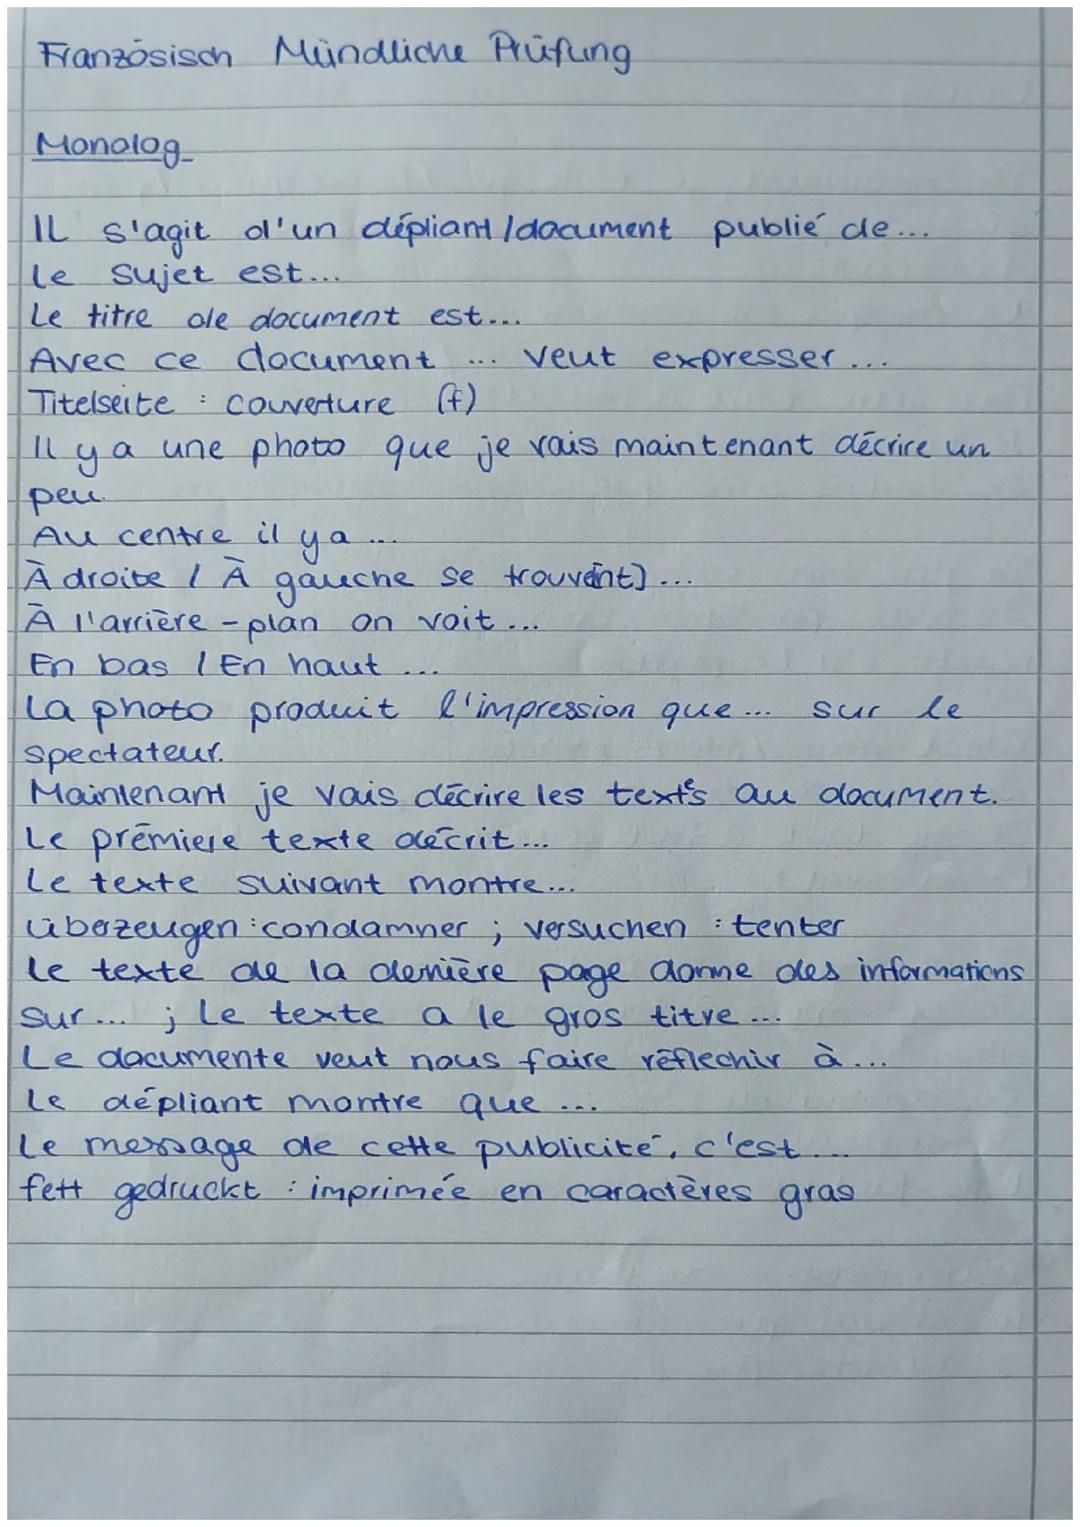 Französisch Mündliche Prüfung
Monolog
IL s'agit d'un dépliant / document publié de...
Le sujet est...
Le titre de document est...
Avec ce document ... veut expresser ...
Titelseite : couverture (f)
Il y a une photo que je vais maintenant décrire un
peu.
Au centre il y a ...
À droite / À gauche se trouve[nt] ...
À l'arrière-plan on voit ...
En bas / En haut ...
La photo produit l'impression que ... sur le
spectateur.
Maintenant je vais décrire les textes au document.
Le prémiere texte décrit ...
Le texte suivant montre ...
überzeugen : condamner ; versuchen : tenter
Le texte de la denière page donne des informations
sur ... ; Le texte a le gros titre ...
Le documente veut nous faire réflechir à ...
Le dépliant montre que ...
Le message de cette publicité, c'est ...
fett gedruckt : imprimée en caractères gras